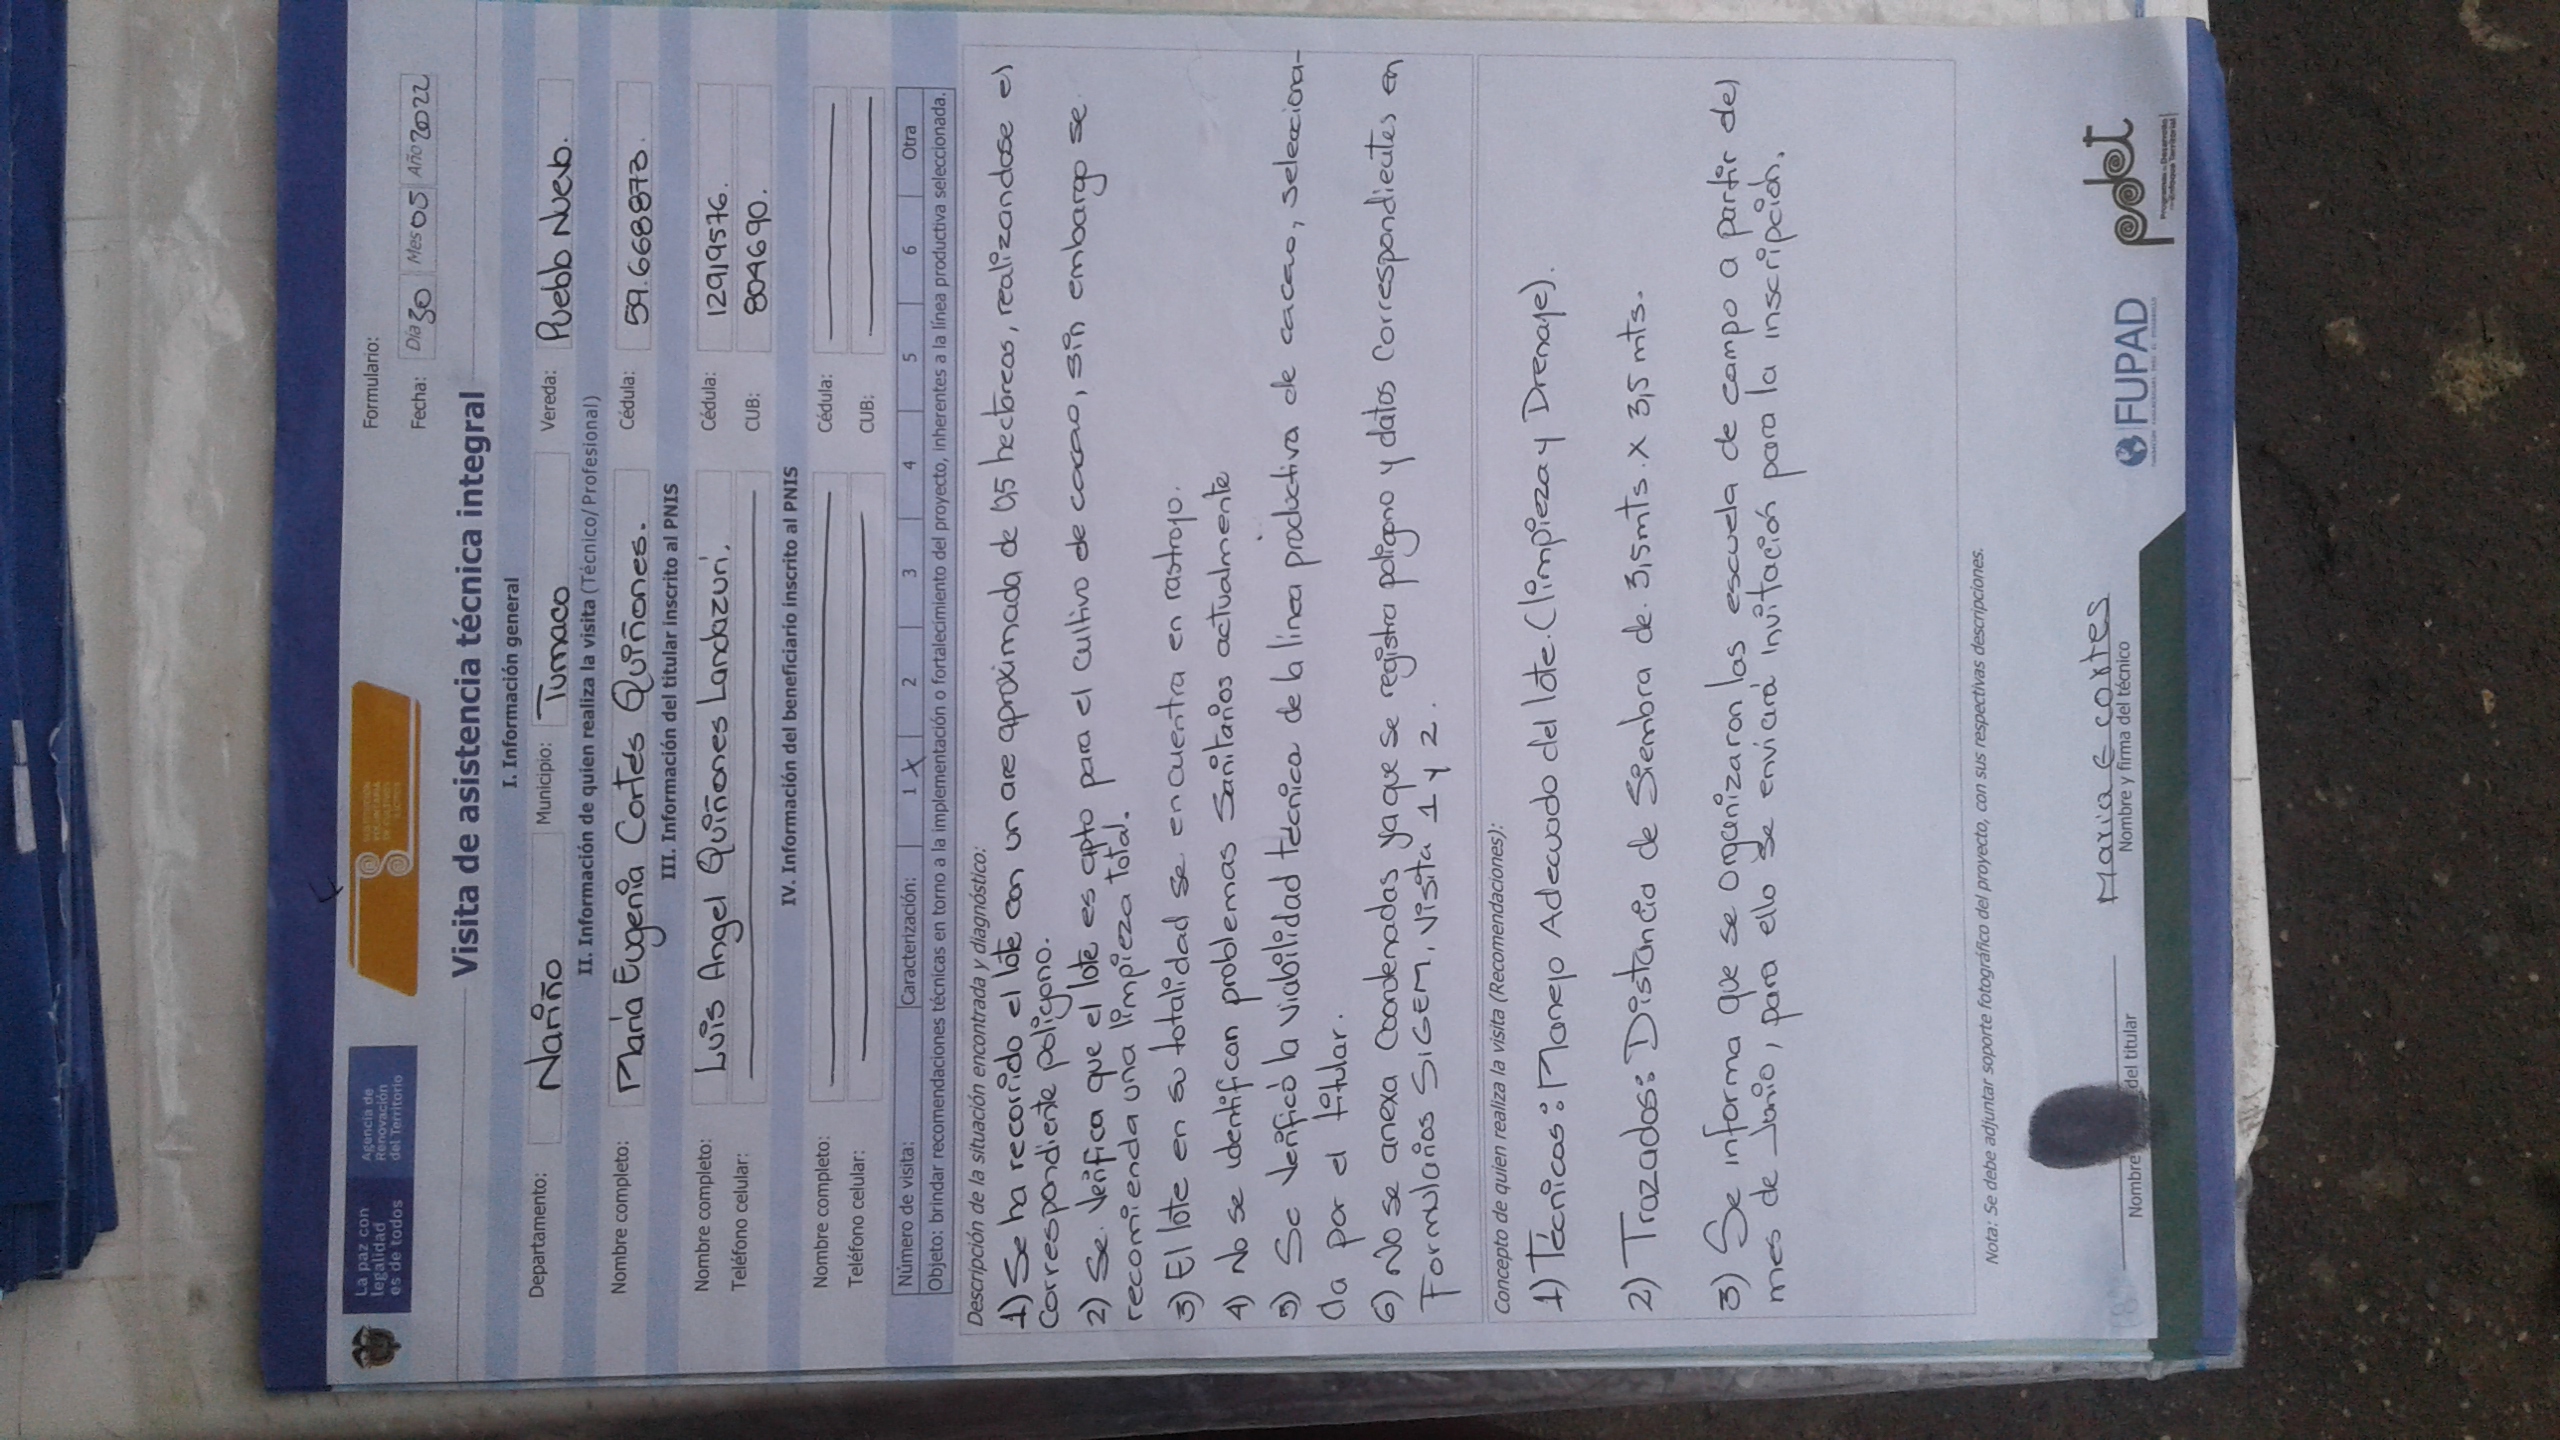 La paz con
legalidad
es de todos
Agencia de
Renovación
del Territorio
Formulario:
Fecha: Día 30 Mes 05 Año 2022
Visita de asistencia técnica integral
I. Información general
Departamento: Nariño Municipio: Tumaco Vereda: Pueblo Nuevo.
II. Información de quien realiza la visita (Técnico/Profesional)
Nombre completo: María Eugenia Cortés Quiñones. Cédula: 59.668873.
III. Información del titular inscrito al PNIS
Nombre completo: Luis Angel Quiñones Landazuri. Cédula: 12919576.
Teléfono celular: CUB: 804690.
IV. Información del beneficiario inscrito al PNIS
Nombre completo: Cédula:
Teléfono celular: CUB:
Número de visita: Caracterización: 1 X 2 3 4 5 6 Otra
Objeto: brindar recomendaciones técnicas en torno a la implementación o fortalecimiento del proyecto, inherentes a la línea productiva seleccionada.
Descripción de la situación encontrada y diagnóstico:
1) Se ha recorrido el lote con un are aproximada de 0,5 hectareas, realizandose el
correspondiente poligono.
2) Se. Verifica que el lote es apto para el cultivo de cacao, sin embargo se
recomienda una limpieza total.
3) El lote en su totalidad se encuentra en rastrojo.
4) No se identifican problemas Sanitarios actualmente
5) Se Verificó la viabilidad técnica de la línea productiva de cacao, selecciona-
da por el titular.
6) No se anexa Coordenadas ya que se registra poligono y datos Correspondientes en
Formularios SIGEM, Visita 1 y 2.
Concepto de quien realiza la visita (Recomendaciones):
1) Técnicas: Manejo Adecuado del lote. (limpieza y Drenaje).
2) Trazados: Distancia de Siembra de 3,5mts. X 3,5 mts.
3) Se informa que se organizaron las escuela de campo a partir del
mes de Junio, para ello se enviará invitación para la inscripción.
Nota: Se debe adjuntar soporte fotográfico del proyecto, con sus respectivas descripciones.
Maria E Cortes
Nombre del titular
Nombre y firma del técnico
FUPAD
pdet